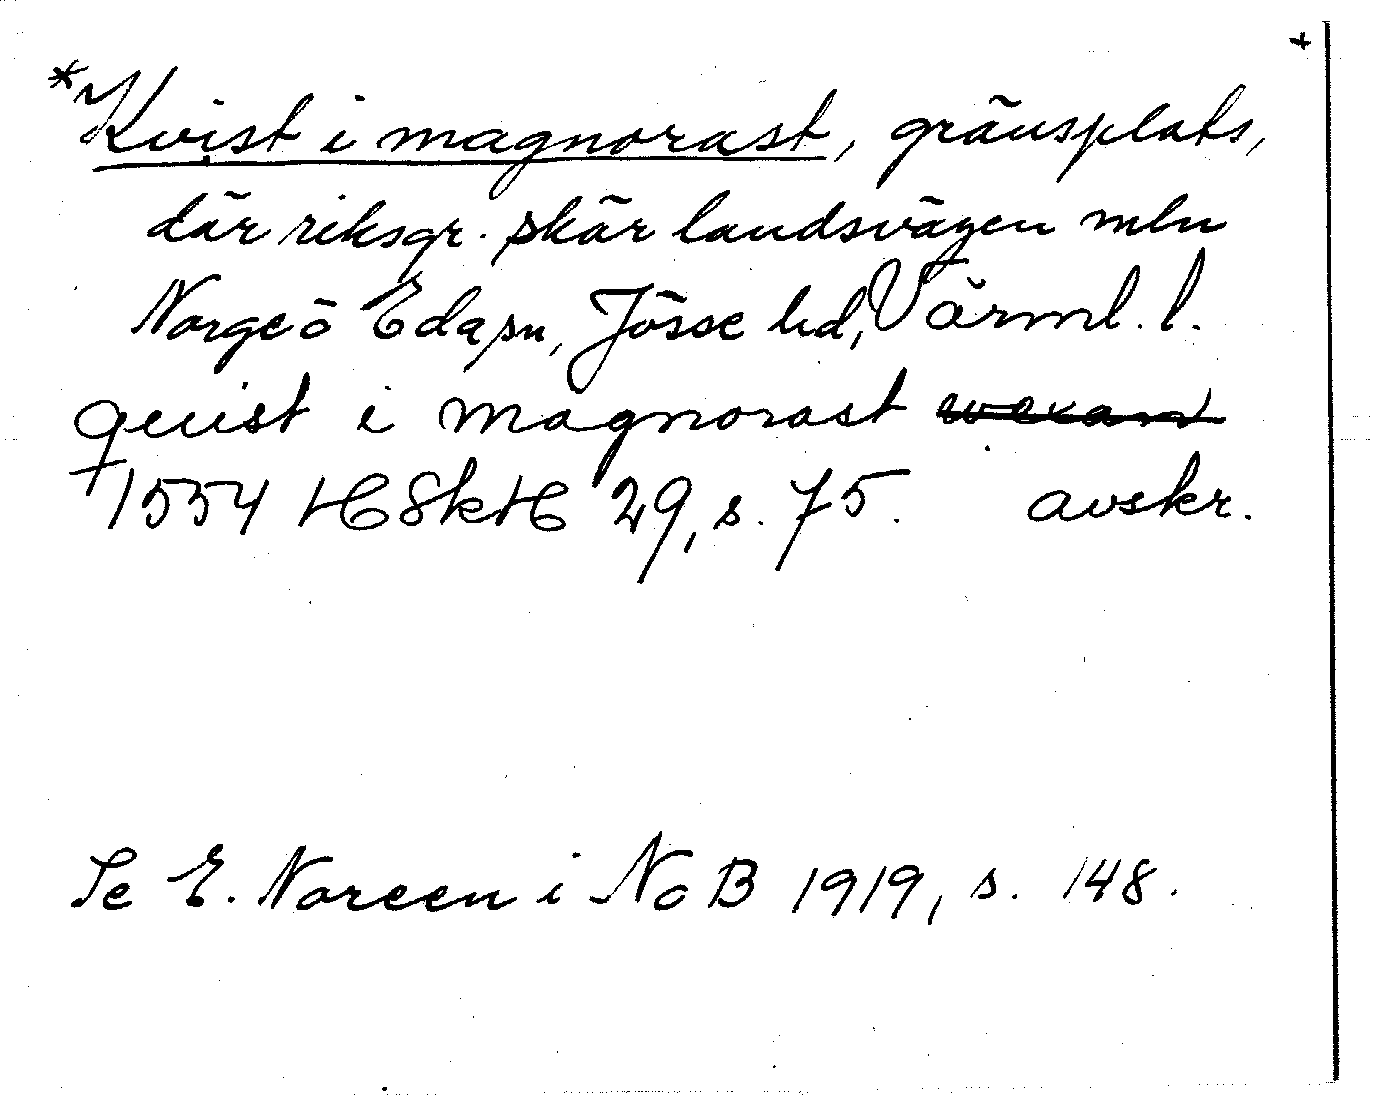 +
*Kvist i magnorast, gränsplats,
där riksgr. skär landsvägen mln
Norge o Eda sn, Jösse hd, Värml. l.
quist i magnorast
1554 HSkH 29, s. 75. avskr.
Se E. Noreen i NoB 1919, s. 148.